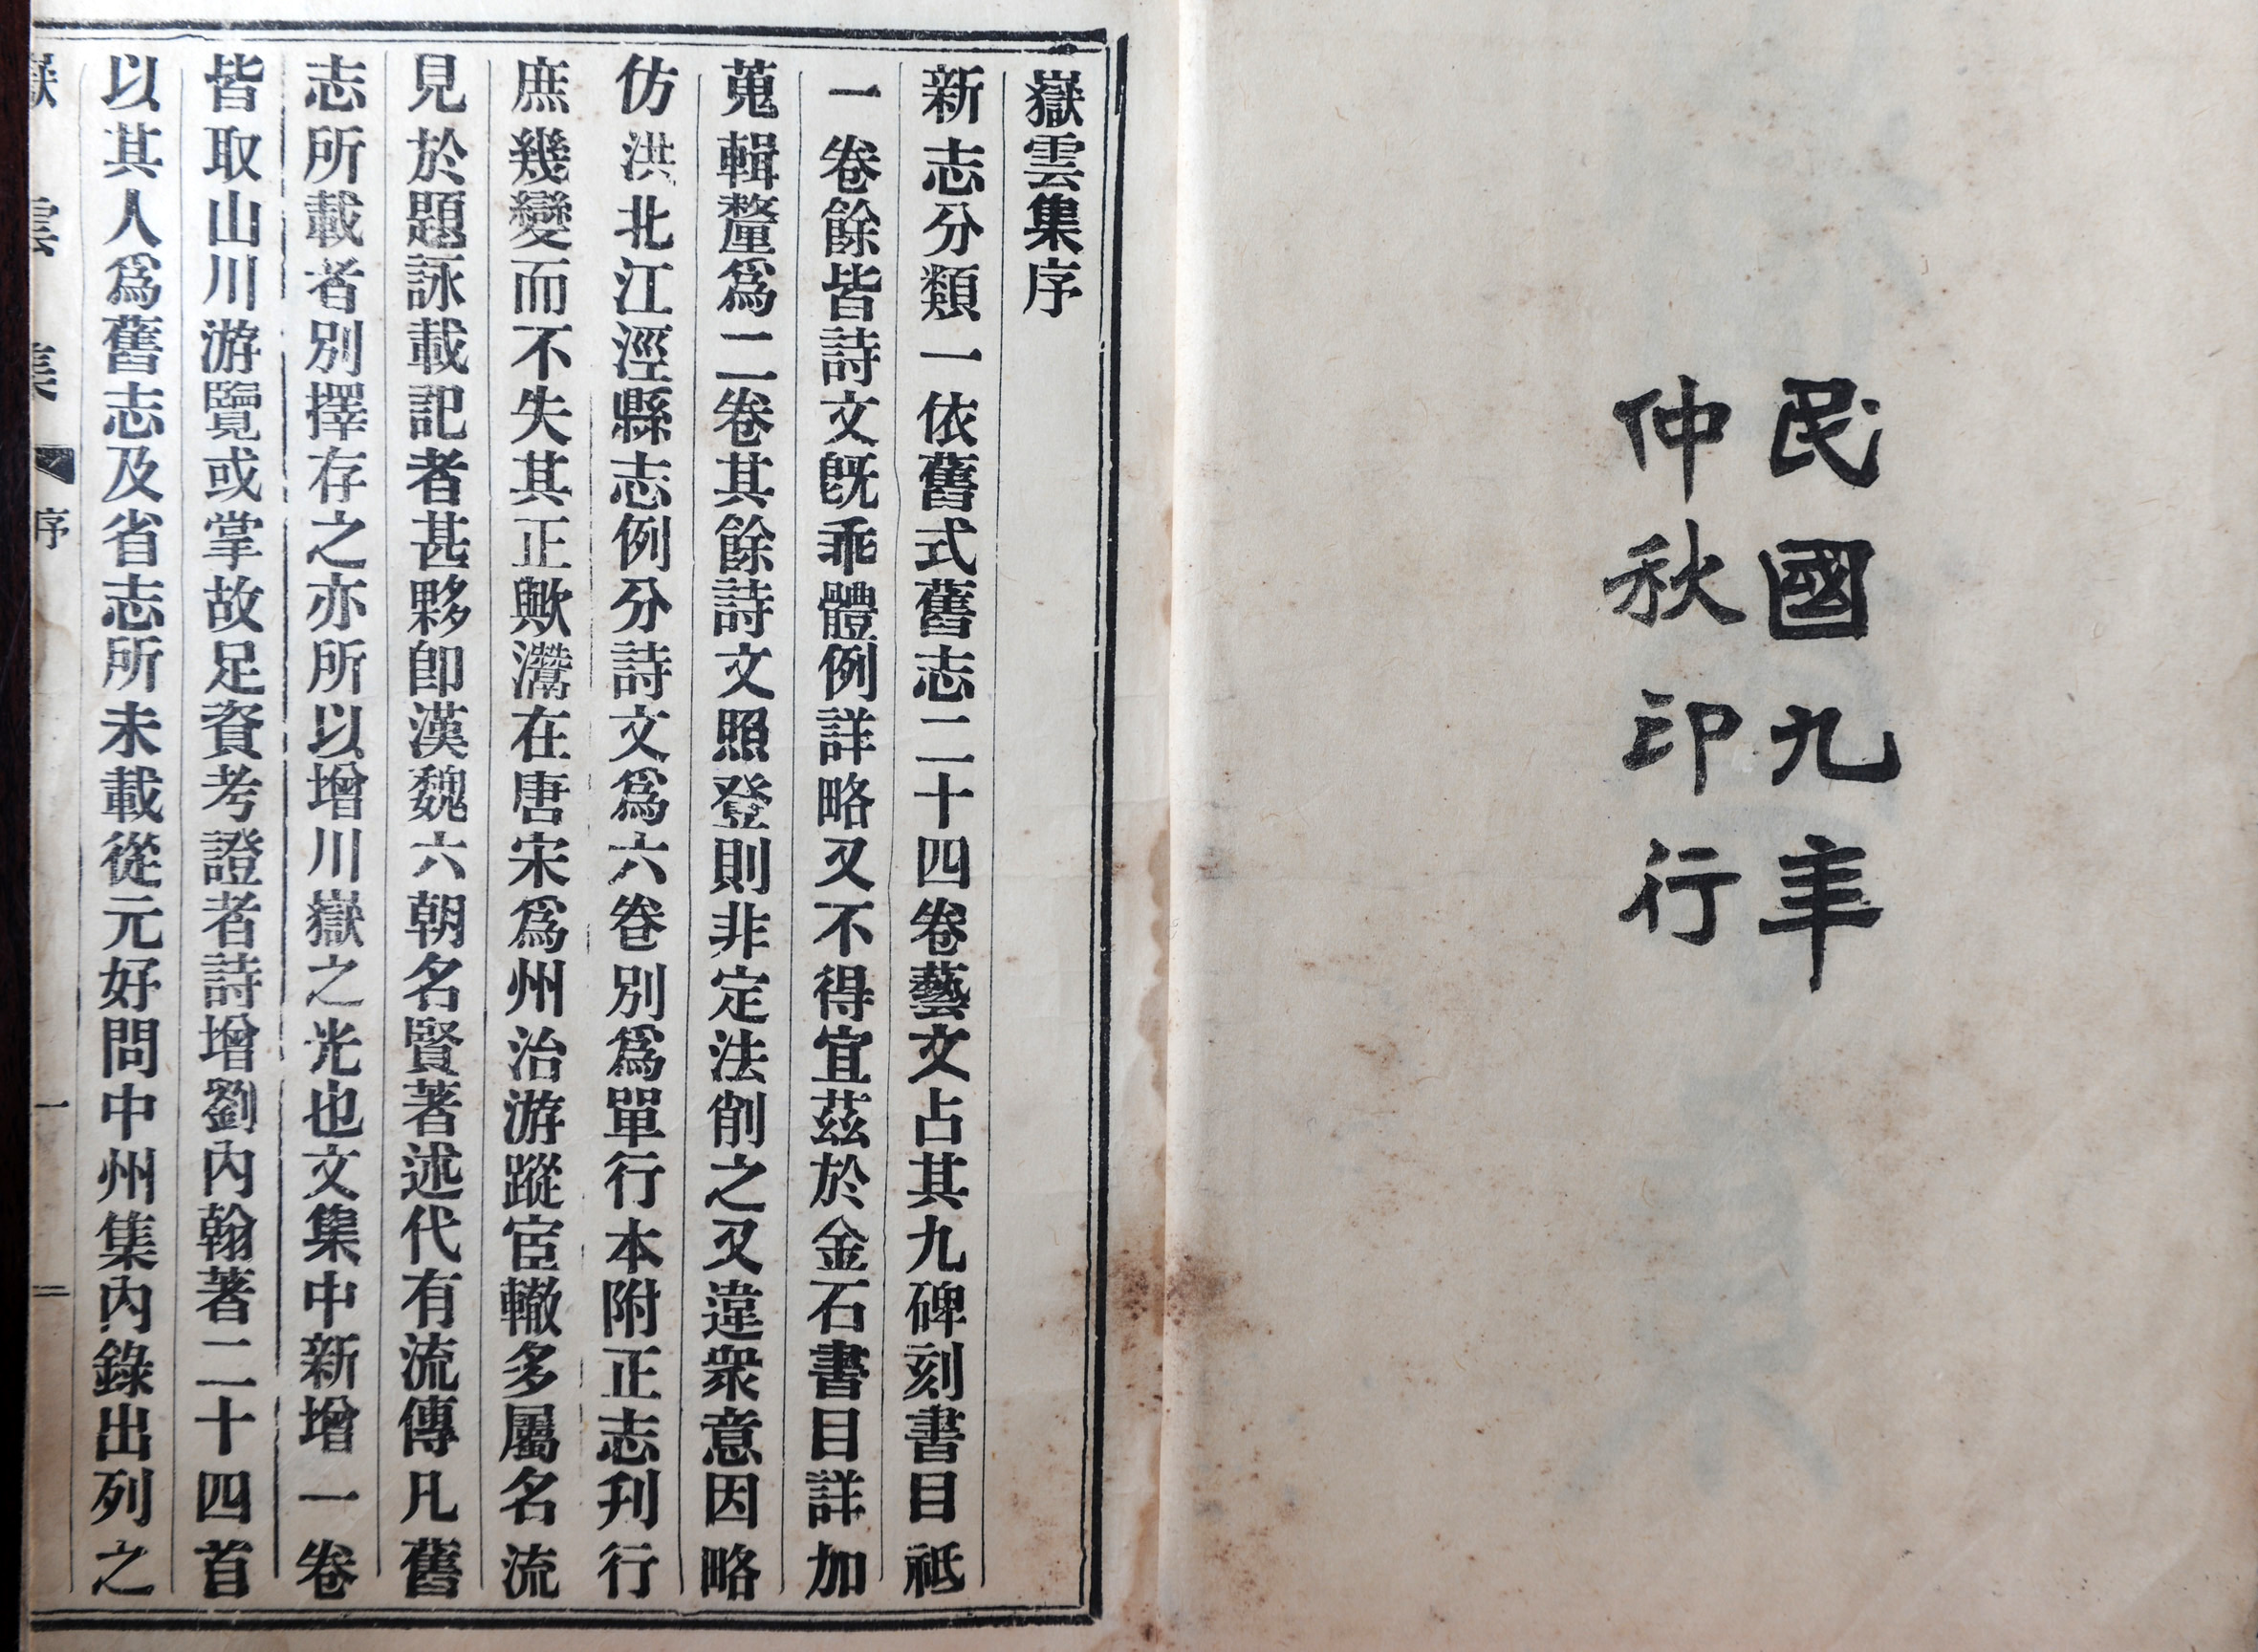 民國九年
仲秋印行
嶽雲集序
新志分類一依舊式舊志二十四卷藝文占其九碑刻書目祗
一卷餘皆詩文旣乖體例詳略又不得宜茲於金石書目詳加
蒐輯釐爲二卷其餘詩文照登則非定法削之又違衆意因略
仿洪北江涇縣志例分詩文爲六卷別爲單行本附正志刋行
庶幾變而不失其正歟灊在唐宋爲州治游蹤宦轍多屬名流
見於題詠載記者甚夥卽漢魏六朝名賢著述代有流傳凡舊
志所載者別擇存之亦所以增川嶽之光也文集中新增一卷
皆取山川游覽或掌故足資考證者詩增劉內翰著二十四首
以其人爲舊志及省志所未載從元好問中州集內錄出列之
嶽雲集 序 一 二